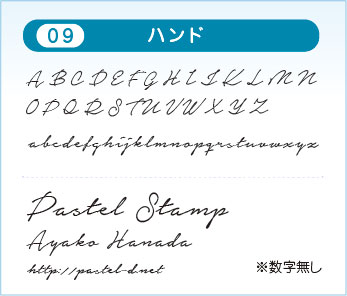 09 ハンド
A B C D E F G H I J K L M N
O P Q R S T U V W X Y Z
abcdefghijklmnopqrstuvwxyz
Pastel Stamp
Ayako Hanada
http://pastel-d.net
※数字無し